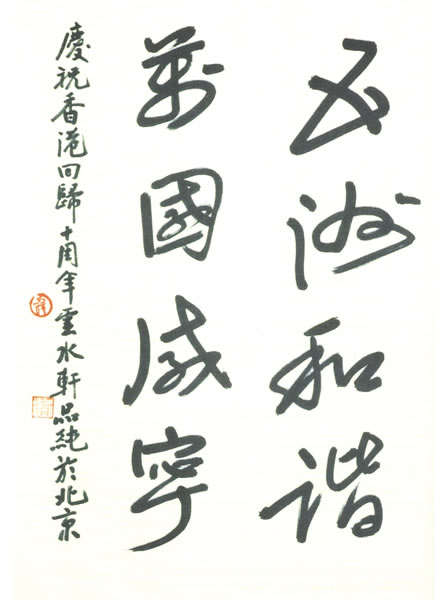 五洲和諧
萬國咸寧
慶祝香港回歸十周年雲水軒品純於北京